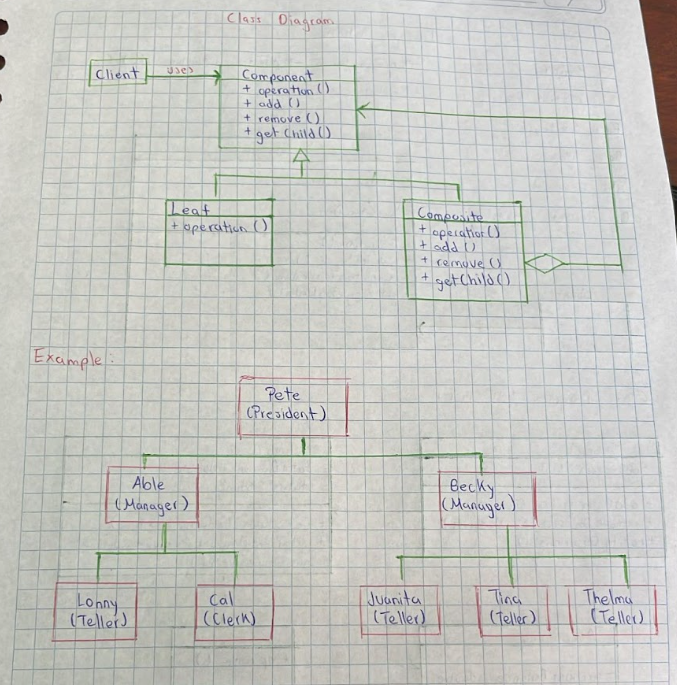 Class Diagram
Client
uses
Component
+ operation()
+ add()
+ remove()
+ getChild()
Leaf
+ operation()
Composite
+ operation()
+ add()
+ remove()
+ getChild()
Example:
Pete
(President)
Able
(Manager)
Becky
(Manager)
Lonny
(Teller)
Cal
(Clerk)
Juanita
(Teller)
Tina
(Teller)
Thelma
(Teller)